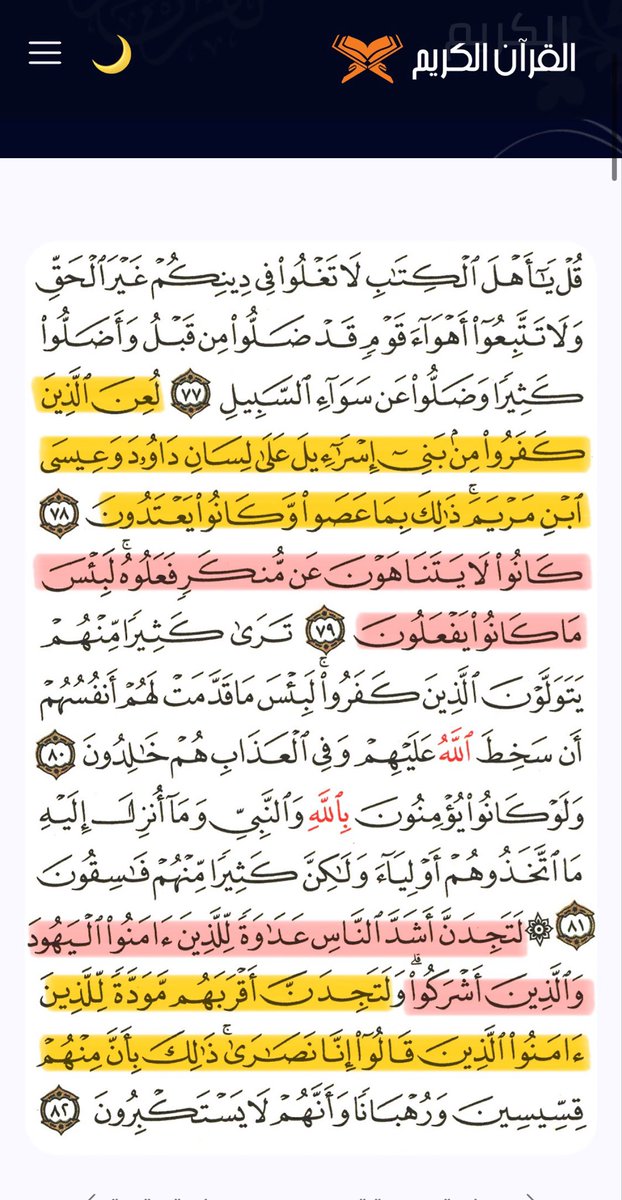 القرآن الكريم
قُلْ يَٰٓأَهْلَ ٱلْكِتَٰبِ لَا تَغْلُوا۟ فِى دِينِكُمْ غَيْرَ ٱلْحَقِّ
وَلَا تَتَّبِعُوٓا۟ أَهْوَآءَ قَوْمٍ قَدْ ضَلُّوا۟ مِن قَبْلُ وَأَضَلُّوا۟
كَثِيرًا وَضَلُّوا۟ عَن سَوَآءِ ٱلسَّبِيلِ ٧٧ لُعِنَ ٱلَّذِينَ
كَفَرُوا۟ مِنۢ بَنِىٓ إِسْرَٰٓءِيلَ عَلَىٰ لِسَانِ دَاوُۥدَ وَعِيسَى
ٱبْنِ مَرْيَمَ ۚ ذَٰلِكَ بِمَا عَصَوا۟ وَّكَانُوا۟ يَعْتَدُونَ ٧٨
كَانُوا۟ لَا يَتَنَاهَوْنَ عَن مُّنكَرٍ فَعَلُوهُ ۚ لَبِئْسَ
مَا كَانُوا۟ يَفْعَلُونَ ٧٩ تَرَىٰ كَثِيرًا مِّنْهُمْ
يَتَوَلَّوْنَ ٱلَّذِينَ كَفَرُوا۟ ۚ لَبِئْسَ مَا قَدَّمَتْ لَهُمْ أَنفُسُهُمْ
أَن سَخِطَ ٱللَّهُ عَلَيْهِمْ وَفِى ٱلْعَذَابِ هُمْ خَٰلِدُونَ ٨٠
وَلَوْ كَانُوا۟ يُؤْمِنُونَ بِٱللَّهِ وَٱلنَّبِىِّ وَمَآ أُنزِلَ إِلَيْهِ
مَا ٱتَّخَذُوهُمْ أَوْلِيَآءَ وَلَٰكِنَّ كَثِيرًا مِّنْهُمْ فَٰسِقُونَ
٨١ ۞ لَتَجِدَنَّ أَشَدَّ ٱلنَّاسِ عَدَٰوَةً لِّلَّذِينَ ءَامَنُوا۟ ٱلْيَهُودَ
وَٱلَّذِينَ أَشْرَكُوا۟ ۖ وَلَتَجِدَنَّ أَقْرَبَهُم مَّوَدَّةً لِّلَّذِينَ
ءَامَنُوا۟ ٱلَّذِينَ قَالُوٓا۟ إِنَّا نَصَٰرَىٰ ۚ ذَٰلِكَ بِأَنَّ مِنْهُمْ
قِسِّيسِينَ وَرُهْبَانًا وَأَنَّهُمْ لَا يَسْتَكْبِرُونَ ٨٢